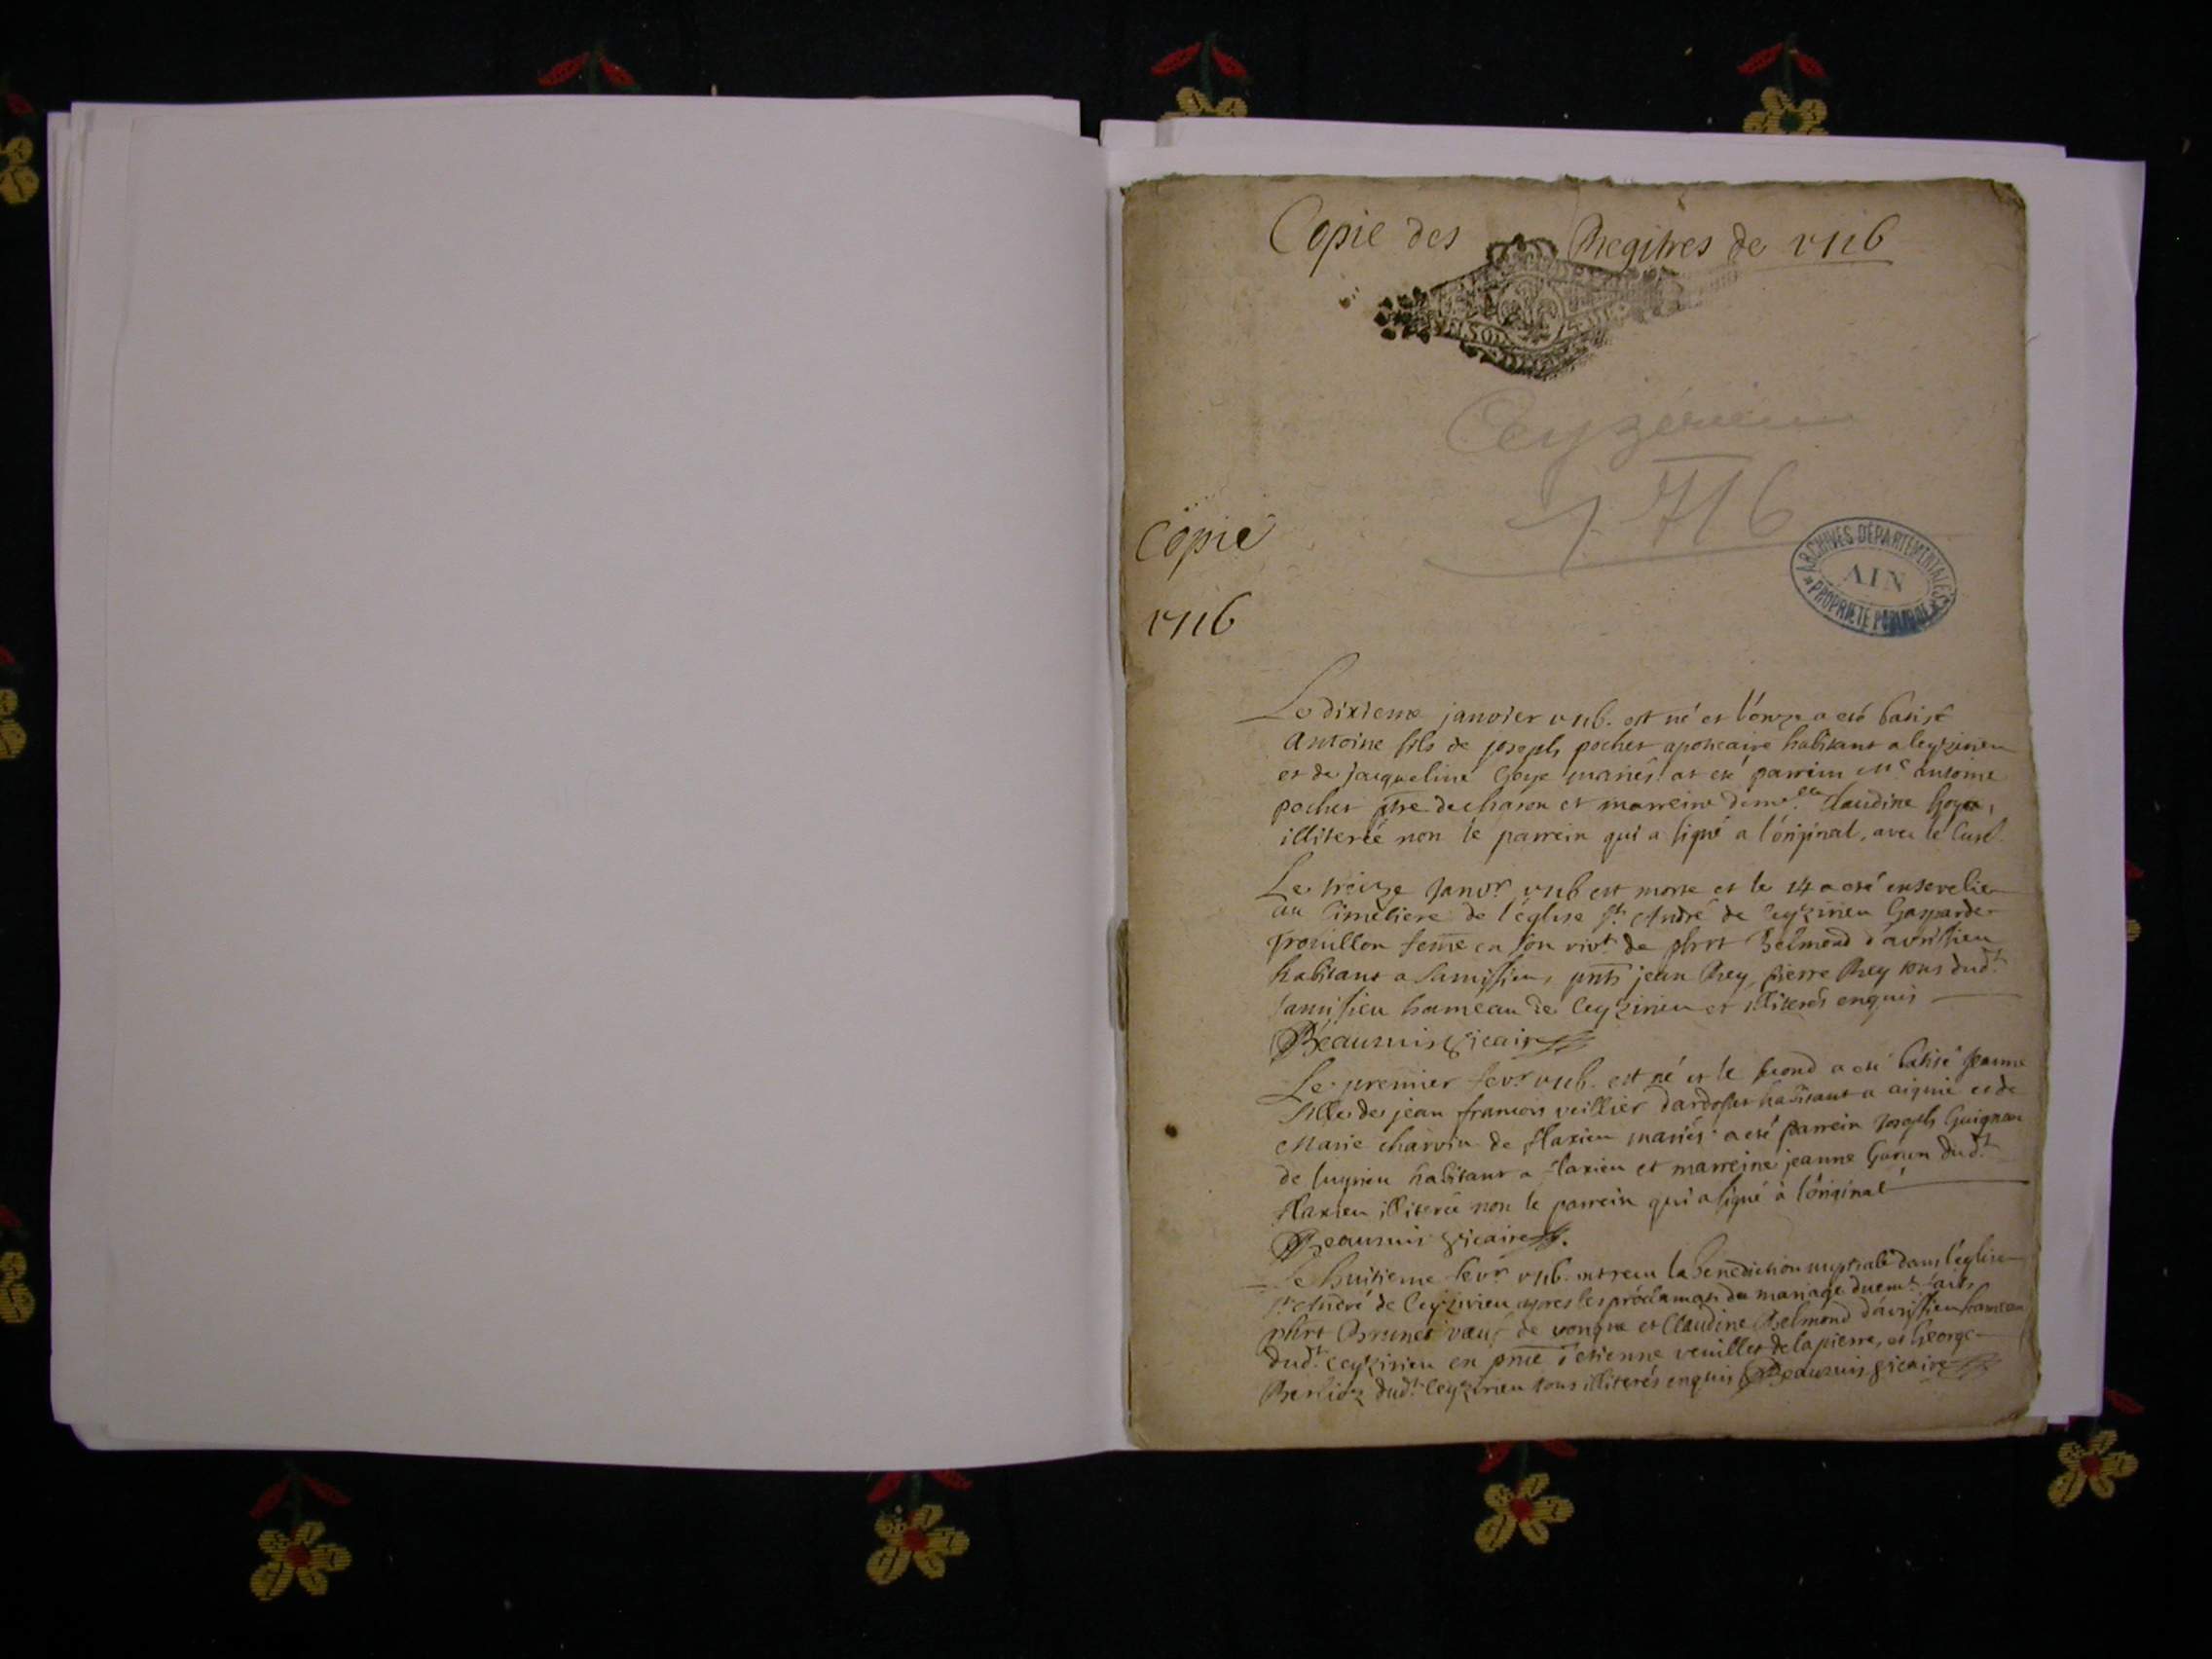 Copie des Regitres de 1716
Ceyzérieu
1716
Copie
1716
ARCHIVES DÉPARTEMENTALES
AIN
PROPRIÉTÉ PUBLIQUE
Le dixieme janvier 1716. est né et l'onze a eté batisé
Antoine fils de joseph pochet apoticaire habitant a Ceyzirieu
et de jacqueline Goye mariés. at eté parrein Mre antoine
pochet ptre de et marreine demlle Claudine Goye,
illiterée non le parrein qui a signé a l'original, avec le Curé.
Le treize janvr 1716 est morte et le 14 a eté ensevelie
au Cimetiere de l'église St André de Ceyzirieu Gasparde
trouillon feme en son vivt de phrt Belmond d'avrissieu
habitant a Samissieu, pnts jean Rey, pierre Rey tous dudt
Samissieu hameau de Ceyzirieu et illiterés enquis
Beaunuis Vicaire
Le premier fevr 1716. est né et le second a eté batisé jeanne
fille de jean francois veillier habitant a aignie et de
Marie charvin de flaxieu mariés. a eté parrein joseph Guignau
de luyrieu habitant a flaxieu et marreine jeanne dudt
flaxieu illiterée non le parrein qui a signé à l'original
Beaunuis Vicaire
Le huitieme fevr 1716. ont receu la benediction nuptiale dans l'église
St André de Ceyzirieu apres les proclamaōns du mariage duemt faites
phrt Brunet de vongne et Claudine Belmond d'avrissieu hameau
dudt Ceyzirieu en pnce d'etienne veuillet de la pierre, et George
Berlioz dudt Ceyzirieu tous illiterés enquis Beaunuis Vicaire